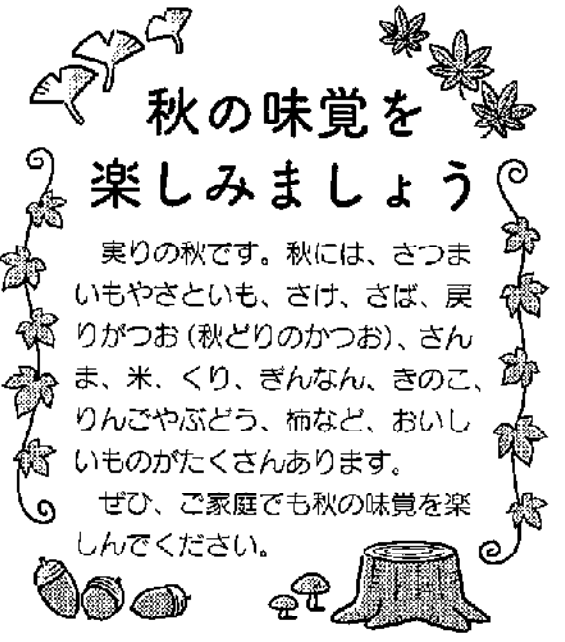 秋の味覚を
楽しみましょう
実りの秋です。秋には、さつま
いもやさといも、さけ、さば、戻
りがつお(秋どりのかつお)、さん
ま、米、くり、ぎんなん、きのこ、
りんごやぶどう、柿など、おいし
いものがたくさんあります。
ぜひ、ご家庭でも秋の味覚を楽
しんでください。